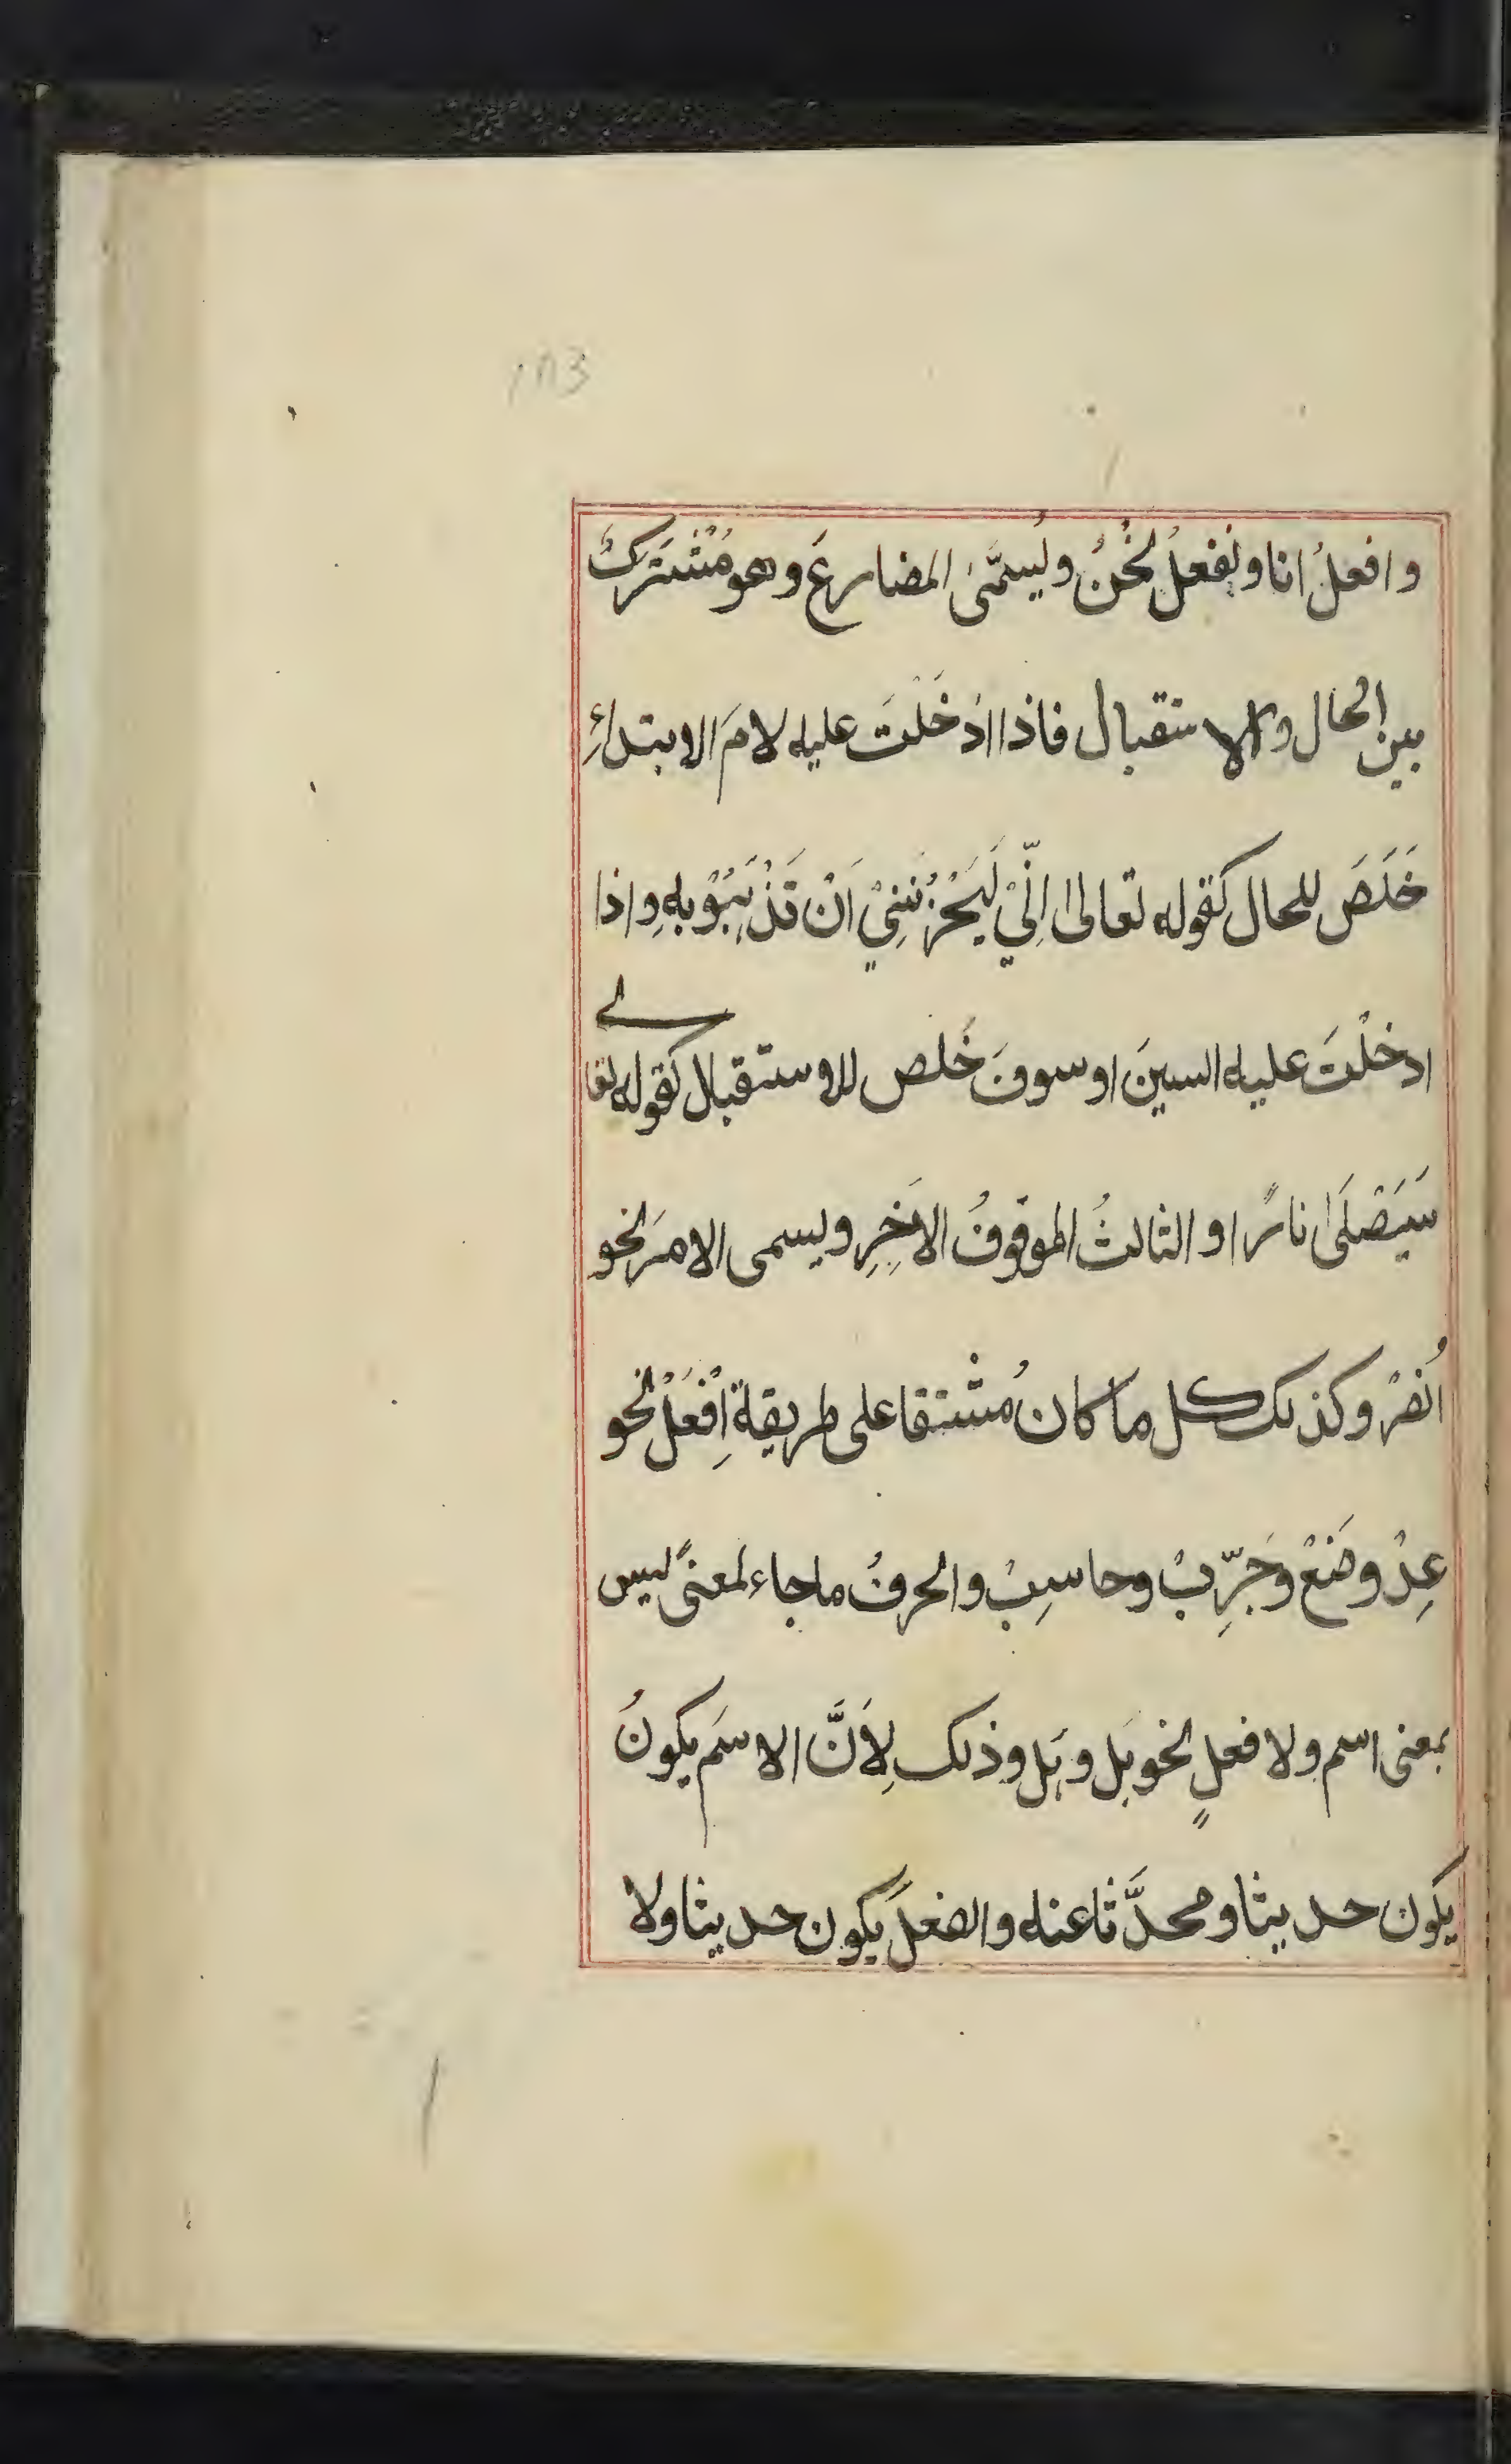 وافعلُ انا ونفعلُ نحُنُ ويُسمَّىٰ المضارعَ وهو مُشْتَركٌ
بين الحال والاستقبال فاذا ادْخَلْتَ عليه لامَ الابتداءِ
خَلَصَ للحال كقوله تعالىٰ اِنِّيْ لَيَحْزُنُنِيْ اَنْ تَذْهَبُوْ بِهٖ واذا
ادخلْتَ عليه السينَ او سوفَ خَلص للاوستقبال كقوله تعالے
سَيَصْلَىٰ نارًا و الثالثُ الموقوفُ الاٰخِرِ ويسمى الامرَ نحو
اُنصُرْ وكذلك كل ما كان مُشْتقا على طريقة اِفْعَلْ نحو
عِدْ وضَعْ وجَرِّبْ وحاسِبْ والحرفُ ما جاء لمعنىً ليس
بمعنى اسم ولا فعلٍ نحو بَل وہَل وذلك لِاَنَّ الاسمَ يكونُ
يكون حديثا ومحدَّثا عنه والفعلَ يكون حديثا ولا